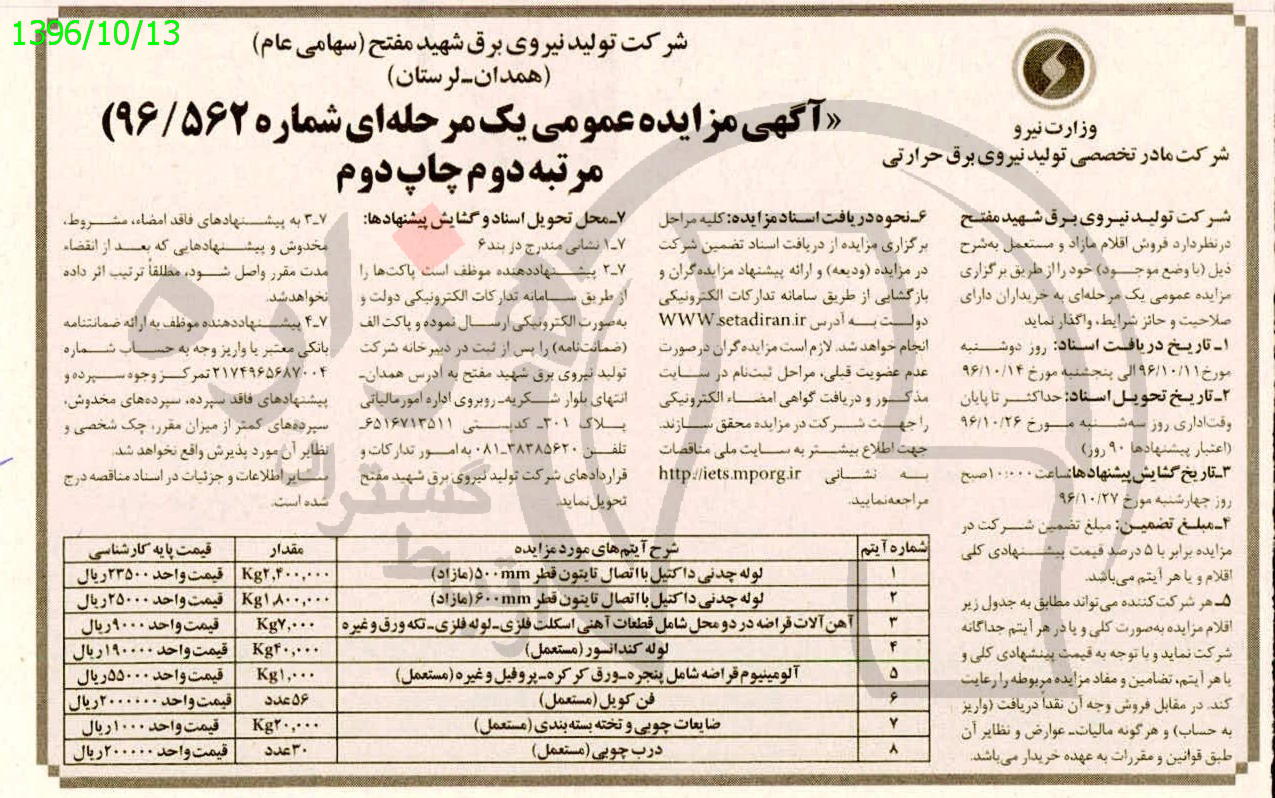 1396/10/13
شرکت تولید نیروی برق شهید مفتح (سهامی عام)
(همدان-لرستان)
«آگهی مزایده عمومی یک مرحله‌ای شماره ۹۶/۵۶۲)
مرتبه دوم چاپ دوم
وزارت نیرو
شرکت مادر تخصصی تولید نیروی برق حرارتی
شرکت تولید نیروی برق شهید مفتح
درنظر دارد فروش اقلام مازاد و مستعمل به‌شرح
ذیل (با وضع موجود) خود را از طریق برگزاری
مزایده عمومی یک مرحله‌ای به خریداران دارای
صلاحیت و حائز شرایط، واگذار نماید
۱-تاریخ دریافت اسناد: روز دوشنبه
مورخ ۹۶/۱۰/۱۱ الی پنجشنبه مورخ ۹۶/۱۰/۱۴
۲-تاریخ تحویل اسناد: حداکثر تا پایان
وقت‌اداری روز سه‌شنبه مورخ ۹۶/۱۰/۲۶
(اعتبار پیشنهادها ۹۰ روز)
۳-تاریخ گشایش پیشنهادها: ساعت ۱۰:۰۰ صبح
روز چهارشنبه مورخ ۹۶/۱۰/۲۷
۴-مبلغ تضمین: مبلغ تضمین شرکت در
مزایده برابر با ۵ درصد قیمت پیشنهادی کلی
اقلام و یا هر آیتم می‌باشد.
۵-هر شرکت‌کننده می‌تواند مطابق به جدول زیر
اقلام مزایده به‌صورت کلی و یا در هر آیتم جداگانه
شرکت نماید و با توجه به قیمت پیشنهادی کلی و
یا هر آیتم، تضامین و مفاد مزایده مربوطه را رعایت
کند. در مقابل فروش وجه آن نقداً دریافت (واریز
به حساب) و هرگونه مالیات-عوارض و نظایر آن
طبق قوانین و مقررات به عهده خریدار می‌باشد.
۶-نحوه دریافت اسناد مزایده: کلیه مراحل
برگزاری مزایده از دریافت اسناد تضمین شرکت
در مزایده (ودیعه) و ارائه پیشنهاد مزایده‌گران و
بازگشایی از طریق سامانه تدارکات الکترونیکی
دولت به آدرس WWW.setadiran.ir
انجام خواهد شد. لازم است مزایده‌گران درصورت
عدم عضویت قبلی، مراحل ثبت‌نام در سایت
مذکور و دریافت گواهی امضاء الکترونیکی
را جهت شرکت در مزایده محقق سازند.
جهت اطلاع بیشتر به سایت ملی مناقصات
به نشانی http://iets.mporg.ir
مراجعه‌نمایید.
۷-محل تحویل اسناد و گشایش پیشنهادها:
۷-۱ نشانی مندرج در بند۶
۷-۲ پیشنهاددهنده موظف است پاکت‌ها را
از طریق سامانه تدارکات الکترونیکی دولت و
به‌صورت الکترونیکی ارسال نموده و پاکت الف
(ضمانت‌نامه) را پس از ثبت در دبیرخانه شرکت
تولید نیروی برق شهید مفتح به آدرس همدان-
انتهای بلوار شکریه-روبروی اداره امور مالیاتی
پلاک ۳۰۱- کدپستی ۶۵۱۶۷۱۳۵۱۱-
تلفن ۰۸۱-۳۸۳۸۵۶۲۰ به امور تدارکات و
قراردادهای شرکت تولید نیروی برق شهید مفتح
تحویل نماید.
۷-۳ به پیشنهادهای فاقد امضاء، مشروط،
مخدوش و پیشنهادهایی که بعد از انقضاء
مدت مقرر واصل شود، مطلقاً ترتیب اثر داده
نخواهدشد.
۷-۴ پیشنهاددهنده موظف به ارائه ضمانتنامه
بانکی معتبر یا واریز وجه به حساب شماره
۲۱۷۴۹۶۵۶۸۷۰۰۴ تمرکز وجوه سپرده و
پیشنهادهای فاقد سپرده، سپرده‌های مخدوش،
سپرده‌های کمتر از میزان مقرر، چک شخصی و
نظایر آن مورد پذیرش واقع نخواهد شد.
سایر اطلاعات و جزئیات در اسناد مناقصه درج
شده است.
شماره آیتم شرح آیتم‌های مورد مزایده مقدار قیمت پایه کارشناسی
۱ لوله چدنی داکتیل با اتصال تایتون قطر ۵۰۰mm (مازاد) Kg۲,۴۰۰,۰۰۰ قیمت واحد ۲۳۵۰۰ ریال
۲ لوله چدنی داکتیل با اتصال تایتون قطر ۶۰۰mm (مازاد) Kg۱,۸۰۰,۰۰۰ قیمت واحد ۲۵۰۰۰ ریال
۳ آهن‌آلات قراضه در دو محل شامل قطعات آهنی اسکلت فلزی-لوله فلزی-تکه ورق و غیره Kg۷,۰۰۰ قیمت واحد ۹۰۰۰ ریال
۴ لوله کندانسور (مستعمل) Kg۴۰,۰۰۰ قیمت واحد ۱۹۰۰۰۰ ریال
۵ آلومینیوم قراضه شامل پنجره-ورق کرکره-پروفیل و غیره (مستعمل) Kg۱,۰۰۰ قیمت واحد ۵۵۰۰۰ ریال
۶ فن کویل (مستعمل) ۵۶عدد قیمت واحد ۲۰۰۰۰۰۰ ریال
۷ ضایعات چوبی و تخته بسته‌بندی (مستعمل) Kg۲۰,۰۰۰ قیمت واحد ۱۰۰۰ ریال
۸ درب چوبی (مستعمل) ۳۰عدد قیمت واحد ۲۰۰۰۰۰ ریال